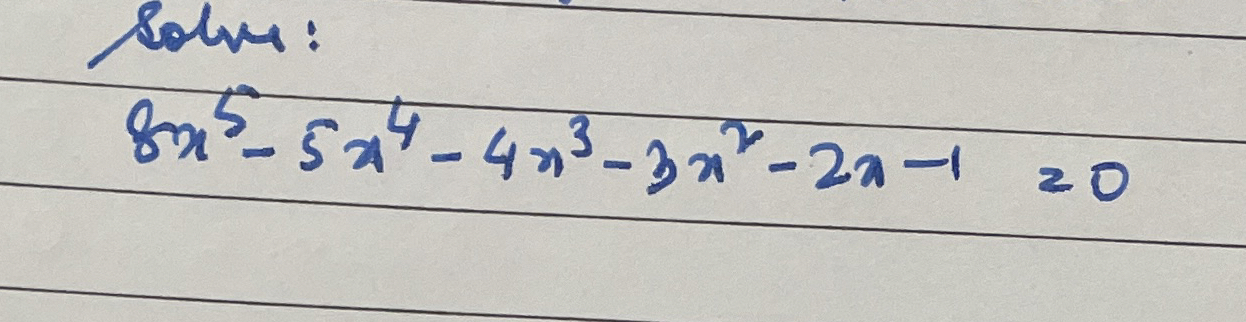 Solve:
8x⁵ - 5x⁴ - 4x³ - 3x² - 2x - 1 = 0